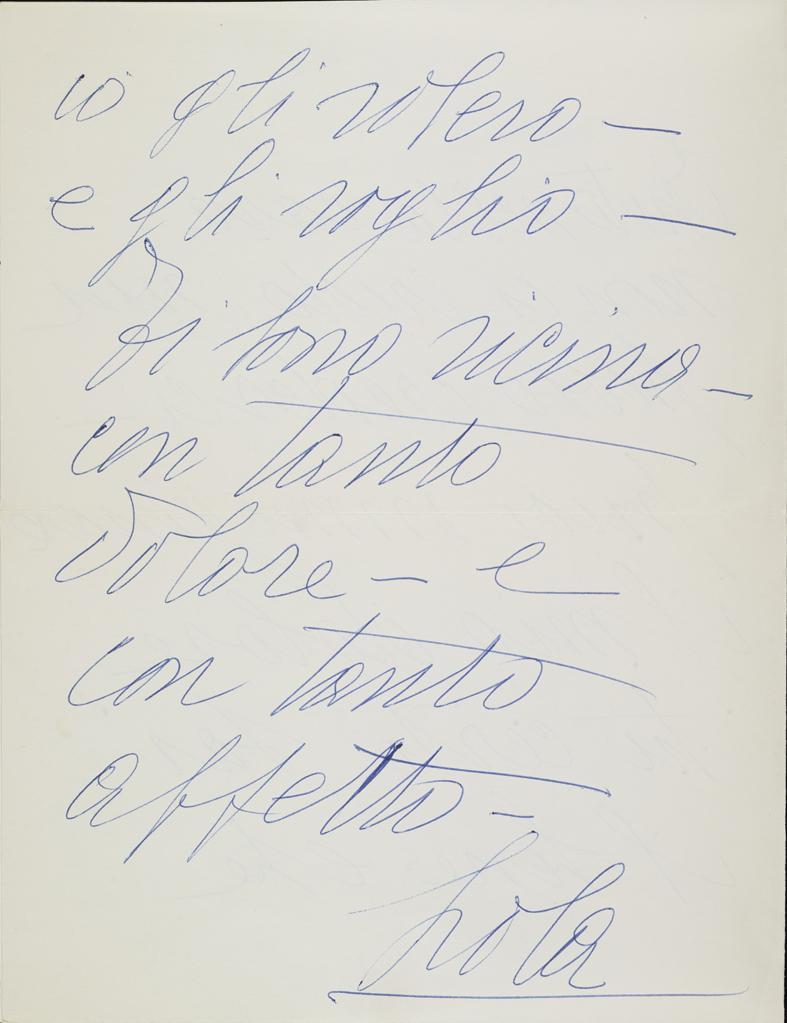 io gli volevo —
e gli voglio —
Ti sono vicina —
con tanto
dolore — e
con tanto
affetto —
Lola